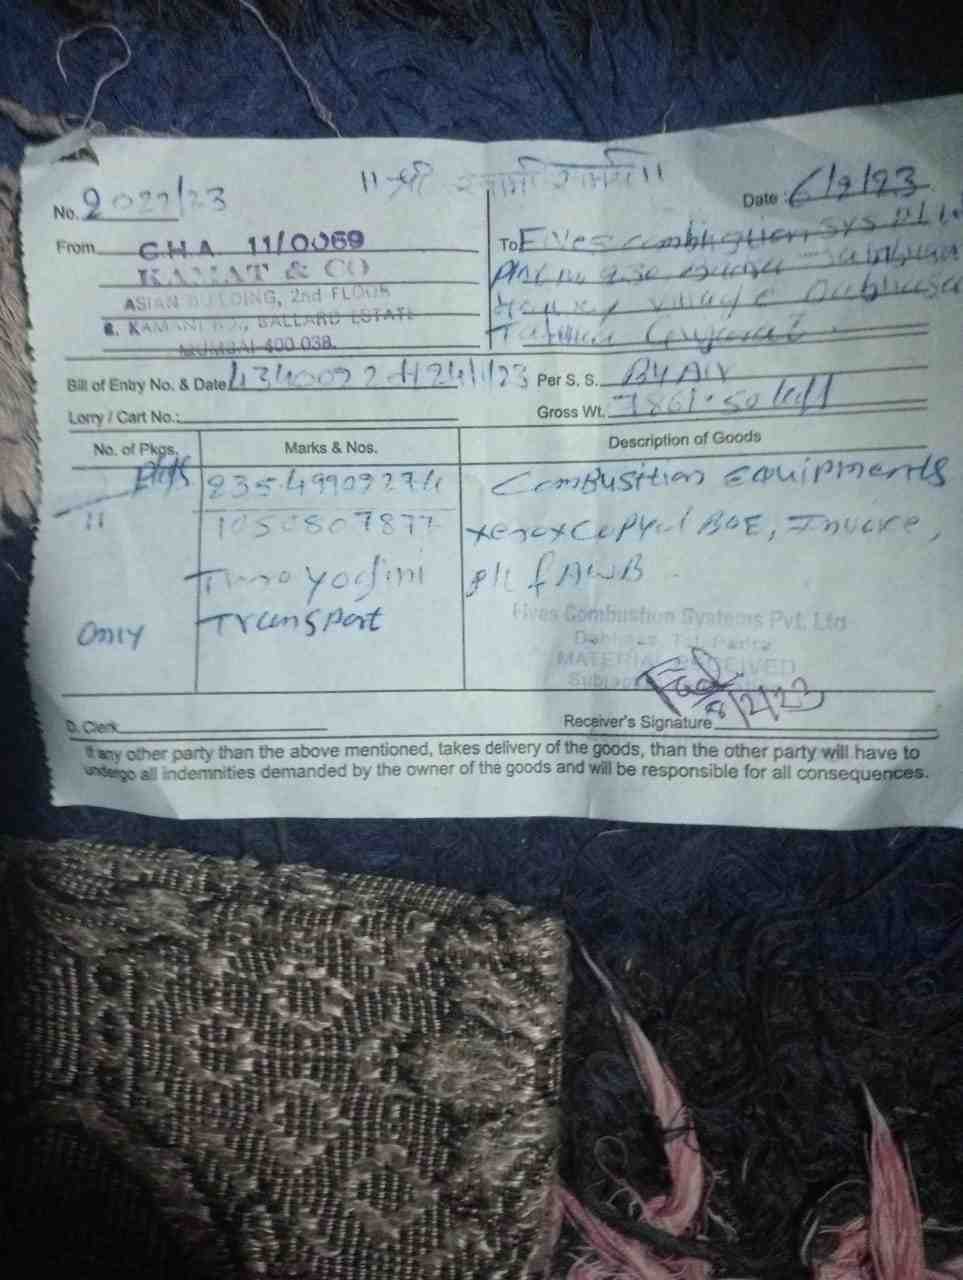 ॥ श्री स्वामी समर्थ ॥
No. 2022/23
Date: 6/2/23
From C.H.A 11/0069
KAMAT & CO
ASIAN BUILDING, 2nd FLOOR
R. KAMANI ROAD, BALLARD ESTATE
MUMBAI-400 038.
To Fives combustion sys
village Dabhasa
Gujarat
Bill of Entry No. & Date
Per S. S. By Air
Lorry / Cart No.:
Gross Wt.
No. of Pkgs. Marks & Nos. Description of Goods
235-49909274 Combusition equipments
11 1050807877 xerox copy of BOE, Invoice,
yogini P/L & AWB
Only Transport
Fives Combustion Systems Pvt. Ltd
MATERIAL RECEIVED
8/2/23
D. Clerk Receiver's Signature
If any other party than the above mentioned, takes delivery of the goods, than the other party will have to
undergo all indemnities demanded by the owner of the goods and will be responsible for all consequences.